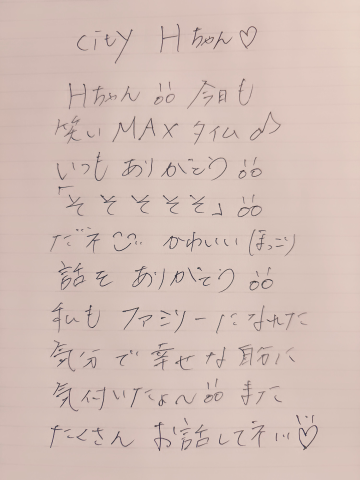 city Hちゃん♡
Hちゃん!! 今日も
笑いMAXタイム♪
いつもありがとう!!
「そそそそそ」!!
だネ かわいい(ほっこり)
話をありがとう!!
私もファミリーになれた
気分で幸せな自分に
気付いたよ〜!! また
たくさんお話してネ!!♡